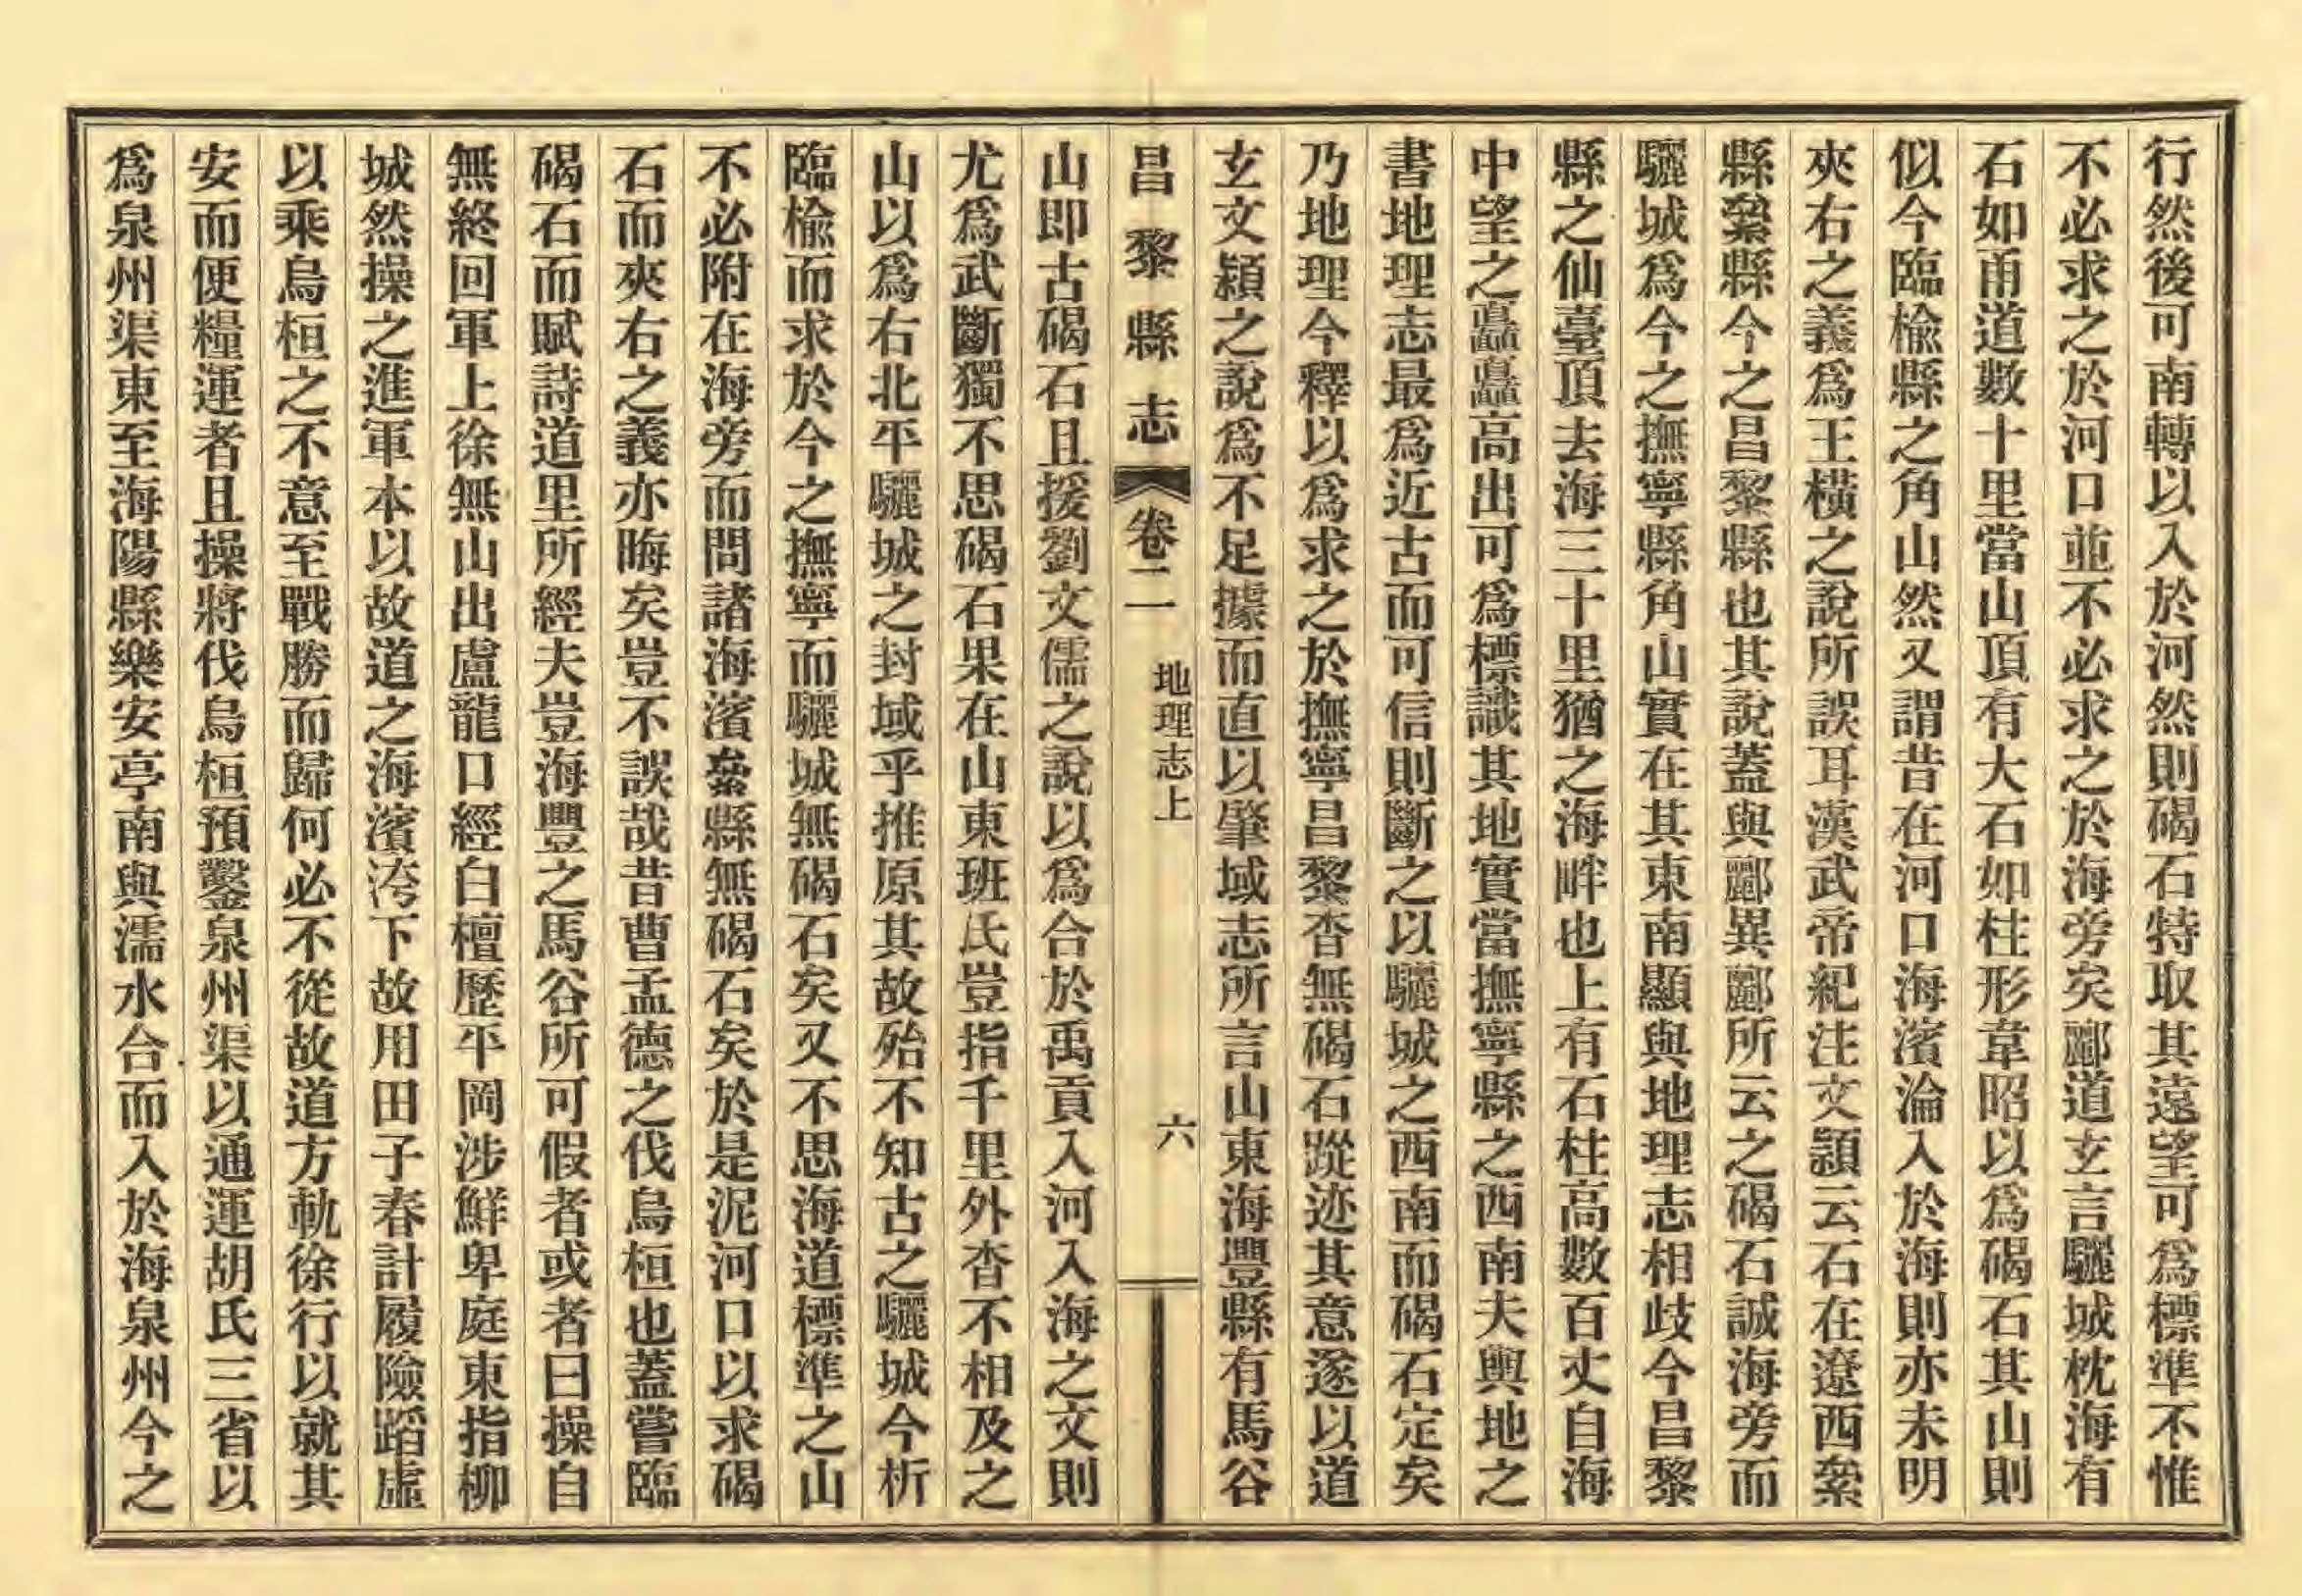 行然後可南轉以入於河然則碣石特取其遠望可爲標準不惟
不必求之於河口並不必求之於海旁矣酈道玄言驪城枕海有
石如甬道數十里當山頂有大石如柱形韋昭以爲碣石其山則
似今臨楡縣之角山然又謂昔在河口海濱淪入於海則亦未明
夾右之義爲王橫之說所誤耳漢武帝紀注文穎云石在遼西絫
縣絫縣今之昌黎縣也其說蓋與酈異酈所云之碣石誠海旁而
驪城爲今之撫寧縣角山實在其東南顯與地理志相歧今昌黎
縣之仙臺頂去海三十里猶之海畔也上有石柱高數百丈自海
中望之矗矗高出可爲標識其地實當撫寧縣之西南夫輿地之
書地理志最爲近古而可信則斷之以驪城之西南而碣石定矣
乃地理今釋以爲求之於撫寧昌黎杳無碣石蹤迹其意遂以道
玄文穎之說爲不足據而直以肇域志所言山東海豐縣有馬谷
昌黎縣志 卷二 地理志上 六
山即古碣石且援劉文儒之說以爲合於禹貢入河入海之文則
尤爲武斷獨不思碣石果在山東班氏豈指千里外杳不相及之
山以爲右北平驪城之封域乎推原其故殆不知古之驪城今析
臨楡而求於今之撫寧而驪城無碣石矣又不思海道標準之山
不必附在海旁而問諸海濱絫縣無碣石矣於是泥河口以求碣
石而夾右之義亦晦矣豈不誤哉昔曹孟德之伐烏桓也蓋嘗臨
碣石而賦詩道里所經夫豈海豐之馬谷所可假者或者曰操自
無終回軍上徐無山出盧龍口經白檀歷平岡涉鮮卑庭東指柳
城然操之進軍本以故道之海濱洿下故用田子春計履險蹈虛
以乘烏桓之不意至戰勝而歸何必不從故道方軌徐行以就其
安而便糧運者且操將伐烏桓預鑿泉州渠以通運胡氏三省以
爲泉州渠東至海陽縣樂安亭南與濡水合而入於海泉州今之